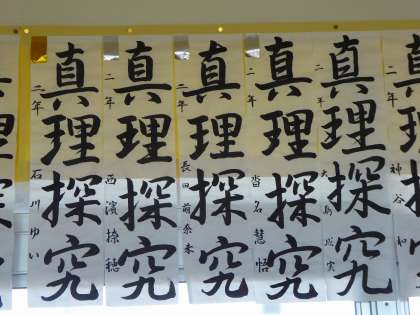 真理探究
二年 神谷 和
真理探究
二年 大島成実
真理探究
二年 沓名慧悟
真理探究
二年 長田
真理探究
二年 西濱捺穂
真理探究
二年 石川ゆい